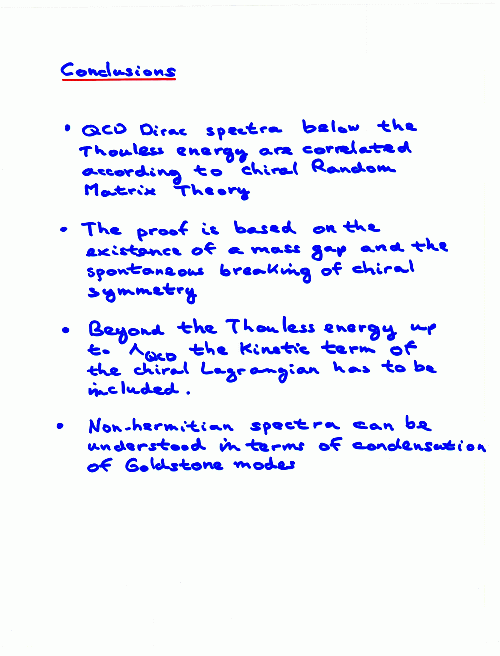 Conclusions
• QCD Dirac spectra below the
Thouless energy are correlated
according to chiral Random
Matrix Theory
• The proof is based on the
existance of a mass gap and the
spontaneous breaking of chiral
symmetry
• Beyond the Thouless energy up
to Λ_QCD the Kinetic term of
the chiral Lagrangian has to be
included.
• Non-hermitian spectra can be
understood in terms of condensation
of Goldstone modes